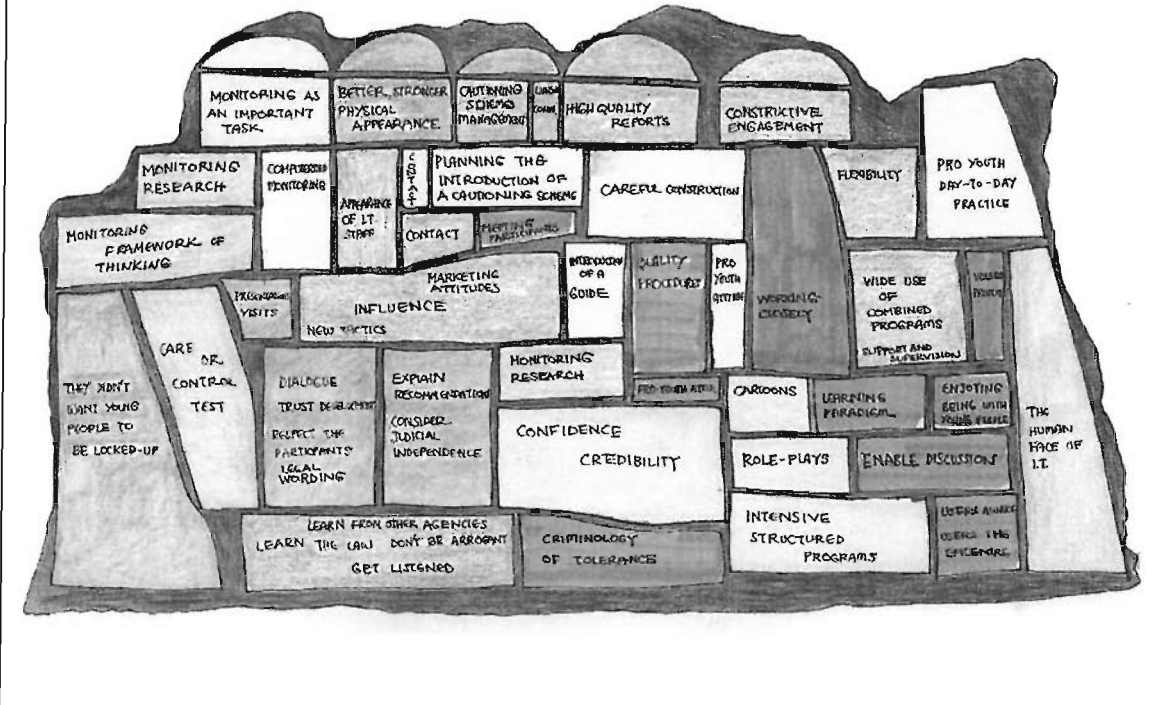 MONITORING AS
AN IMPORTANT
TASK.
BETTER, STRONGER
PHYSICAL
APPEARANCE.
CAUTIONING
SCHEMES
MANAGEMENT
HIGH QUALITY
REPORTS
CONSTRUCTIVE
ENGAGEMENT
PRO YOUTH
DAY-TO-DAY
PRACTICE
MONITORING
RESEARCH
COMPUTERISED
MONITORING
APPEARANCE
OF I.T.
STAFF
CONTACT
PLANNING THE
INTRODUCTION OF
A CAUTIONING SCHEME
CAREFUL CONSTRUCTION
FLEXIBILITY
MONITORING
FRAMEWORK OF
THINKING
CONTACT
MEETING
PARTICIPANTS
MARKETING
ATTITUDES
INFLUENCE
NEW TACTICS
INTRODUCTION
OF A
GUIDE
QUALITY
PROCEDURES
PRO
YOUTH
ATTITUDE
WORKING
CLOSELY
WIDE USE
OF
COMBINED
PROGRAMS
SUPPORT AND
SUPERVISION
VISITS
THEY DIDN'T
WANT YOUNG
PEOPLE TO
BE LOCKED-UP
CARE
OR
CONTROL
TEST
DIALOGUE
TRUST DEVELOPMENT
RESPECT THE
PARTICIPANTS
LEGAL
WORDING
EXPLAIN
RECOMMENDATIONS
CONSIDER
JUDICIAL
INDEPENDENCE
MONITORING
RESEARCH
PRO-YOUTH
CARTOONS
LEARNING
PARADIGM
ENJOYING
BEING WITH
YOUNG PEOPLE
THE
HUMAN
FACE OF
I.T.
CONFIDENCE
CREDIBILITY
ROLE-PLAYS
ENABLE DISCUSSION
LEARN FROM OTHER AGENCIES
LEARN THE LAW DON'T BE ARROGANT
GET LISTENED
CRIMINOLOGY
OF TOLERANCE
INTENSIVE
STRUCTURED
PROGRAMS
USERS THE